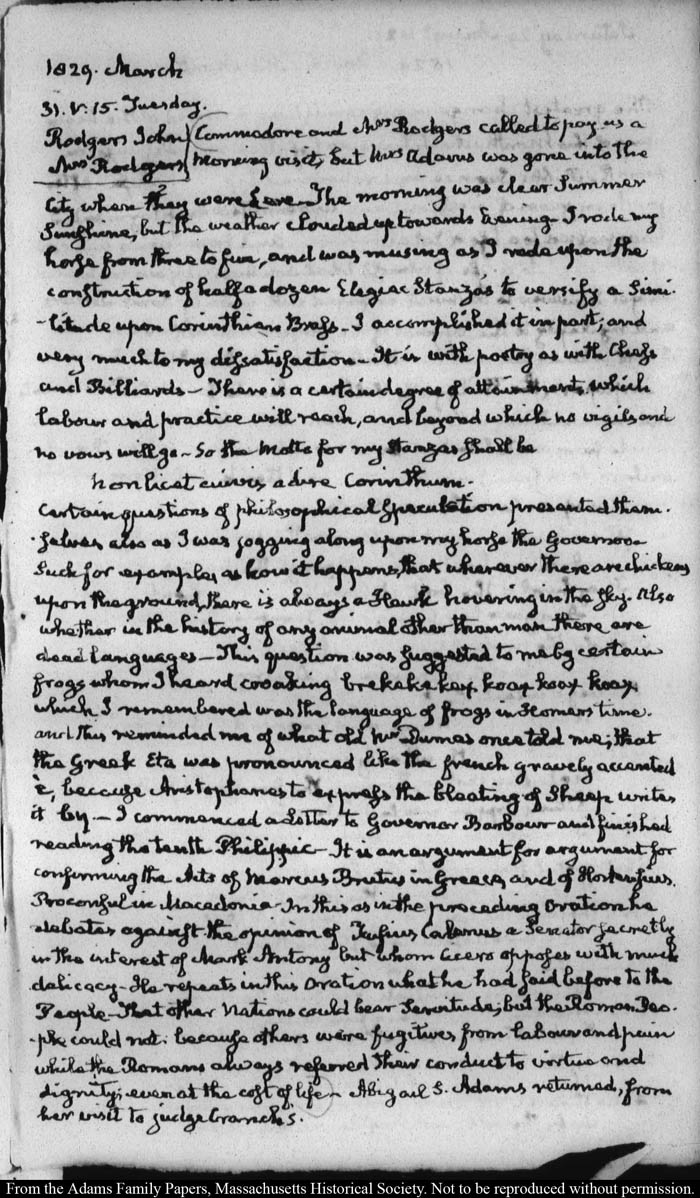 1829. March
31. V:15. Tuesday.
Rodgers John Commodore and Mrs Rodgers called to pay us a
Mrs Rodgers morning visit, but Mrs Adams was gone into the
City where they were gone. The morning was clear Summer
Sunshine, but the weather clouded up towards Evening. I rode my
horse from three to five, and was musing as I rode upon the
construction of half a dozen Elegiac Stanzas to versify a Simi-
-litude upon Corinthian Brass. I accomplished it in part; and
very much to my dissatisfaction. It is with poetry as with Chess
and Billiards. There is a certain degree of attainment, which
labour and practice will reach, and beyond which no vigils and
no vows will go. So the Motto for my Stanzas shall be
Non licet cuivis, adire Corinthum.
Certain questions of philosophical speculation presented them-
-selves also as I was jogging along upon my horse the Governor
Such for example, as how it happens, that wherever there are chickens
upon the ground, there is always a Hawk hovering in the sky. Also
whether in the history of any animal other than man there are
dead languages. This question was suggested to me by certain
frogs whom I heard croaking brekekekex koax koax koax
which I remembered was the language of frogs in Homer's time.
and this reminded me of what old Mr Dumas once told me; that
the Greek Eta was pronounced like the french gravely accented
è, because Aristophanes to express the bleating of Sheep writes
it by — I commenced a Letter to Governor Barbour and finished
reading the tenth Philippic. It is an argument for argument for
confirming the Acts of Marcus Brutus in Greece, and of Hortensius.
Proconsul in Macedonia. In this as in the preceding Oration he
debates against the opinion of Fufius Calenus a Senator secretly
in the interest of Mark Antony but whom Cicero opposes with much
delicacy. He repeats in this Oration what he had said before to the
People. That other Nations could bear Servitude; but the Roman Peo-
-ple could not: because others were fugitives from labour and pain
while the Romans always referred their conduct to virtue and
dignity; even at the cost of life. Abigail S. Adams returned, from
her visit to judge Cranch's.
From the Adams Family Papers, Massachusetts Historical Society. Not to be reproduced without permission.